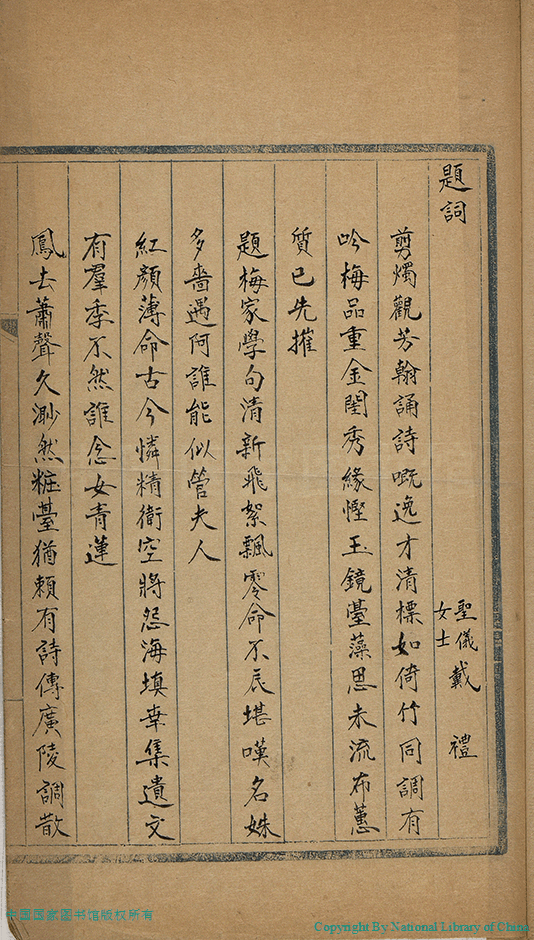 題詞
聖儀女士戴禮
剪燭觀芳翰誦詩嘅逸才清標如倚竹同調有
吟梅品重金閨秀緣慳玉鏡臺藻思未流布蕙
質已先摧
題梅家學句清新飛絮飄零命不辰堪嘆名姝
多嗇遇阿誰能似管夫人
紅顏薄命古今憐精衛空將怨海填幸集遺文
有羣季不然誰念女青蓮
鳳去蕭聲久渺然粧臺猶賴有詩傳廣陵調散
中国国家图书馆版权所有
Copyright By National Library of China